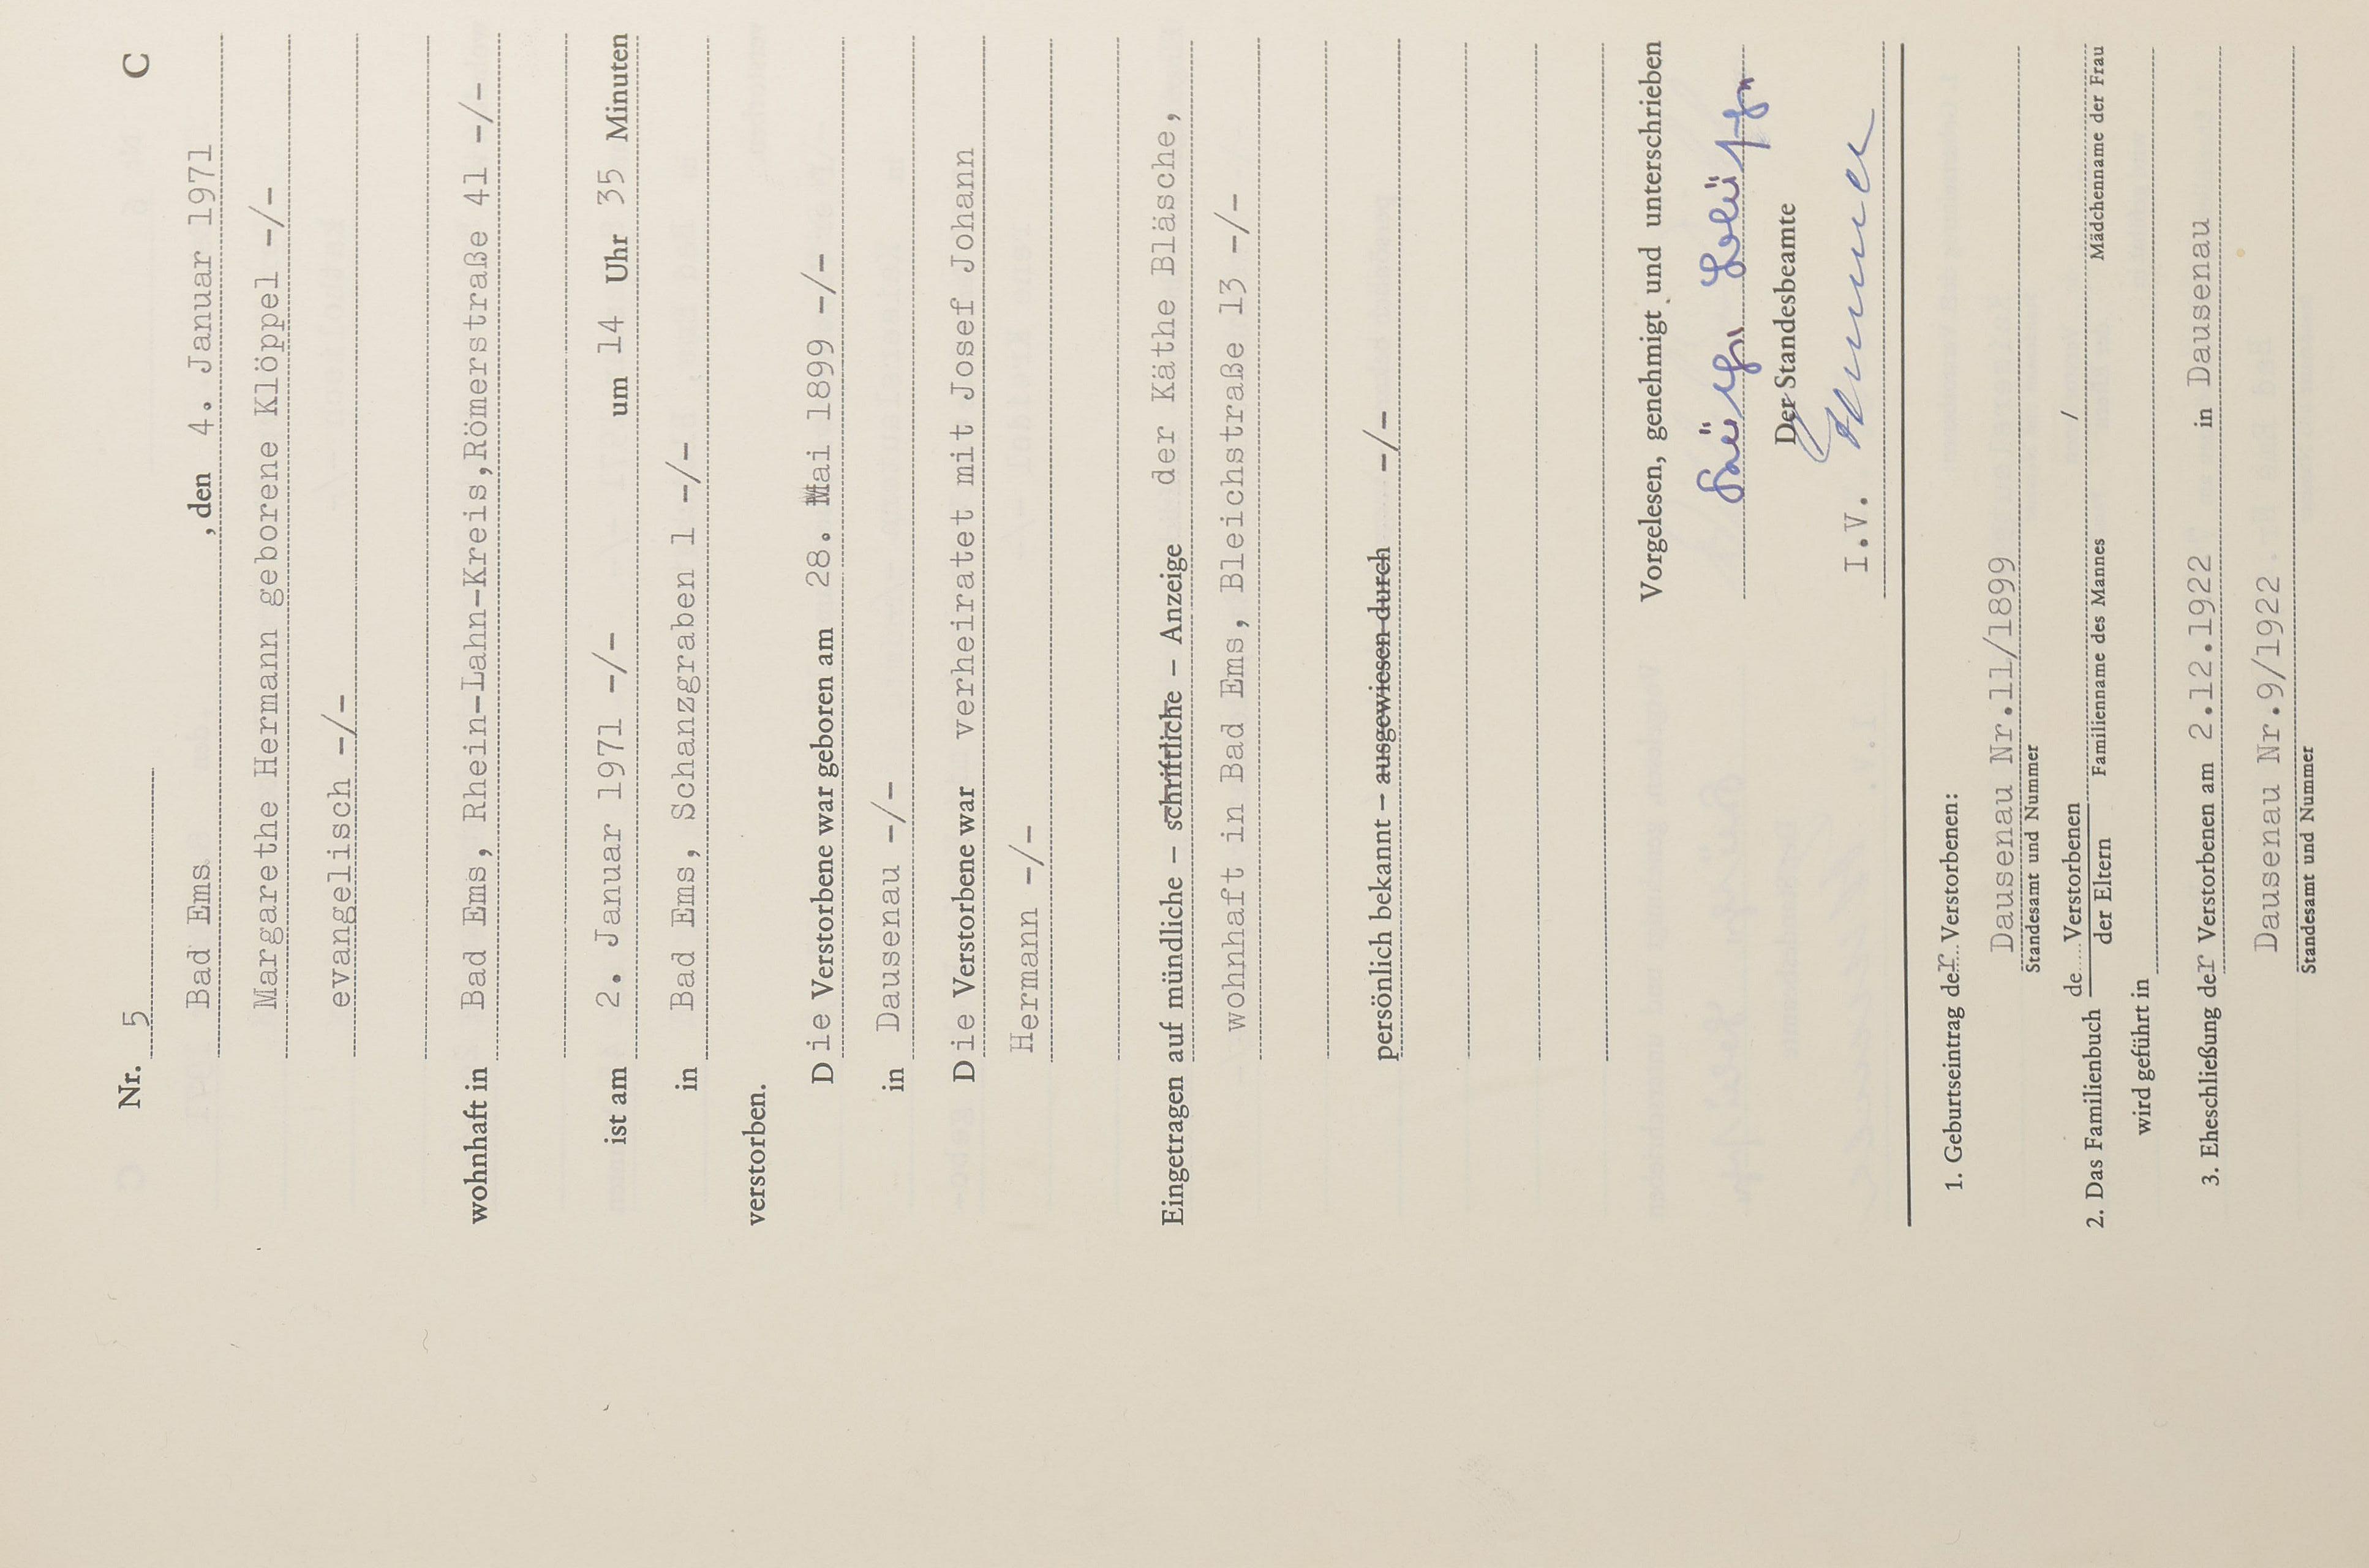 Nr. 5 C
Bad Ems , den 4. Januar 1971
Margarethe Hermann geborene Klöppel -/-
evangelisch -/-
wohnhaft in Bad Ems, Rhein-Lahn-Kreis,Römerstraße 41 -/-
ist am 2. Januar 1971 -/- um 14 Uhr 35 Minuten
in Bad Ems, Schanzgraben 1 -/-
verstorben.
Die Verstorbene war geboren am 28. Mai 1899 -/-
in Dausenau -/-
Die Verstorbene war verheiratet mit Josef Johann
Hermann -/-
Eingetragen auf mündliche – schriftliche – Anzeige der Käthe Bläsche,
wohnhaft in Bad Ems, Bleichstraße 13 -/-
persönlich bekannt – ausgewiesen durch -/-
Vorgelesen, genehmigt und unterschrieben
Der Standesbeamte
I.V.
1. Geburtseintrag der Verstorbenen:
Dausenau Nr.11/1899
Standesamt und Nummer
2. Das Familienbuch de.... Verstorbenen /
der Eltern Familienname des Mannes Mädchenname der Frau
wird geführt in
3. Eheschließung der Verstorbenen am 2.12.1922 in Dausenau
Dausenau Nr.9/1922
Standesamt und Nummer